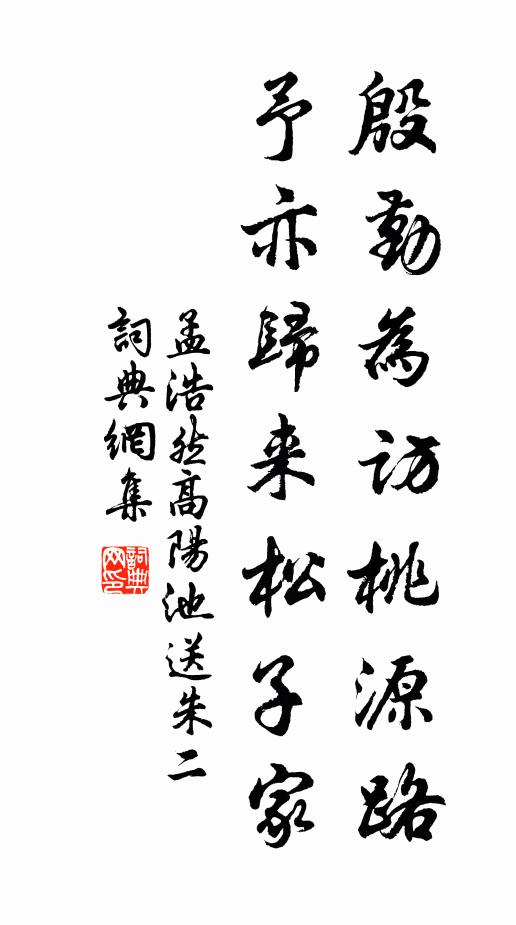 殷勤為訪桃源路
予亦歸来松子家
孟浩然高陽池送朱二
詞典網集
詞典網印